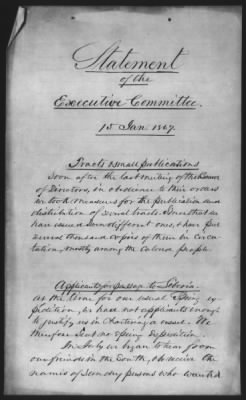 Statement
of the
Executive Committee.
15 Jan. 1867.
Tracts & small publications
Soon after the last meeting of the Board
of Directors, in obedience to their orders
we took measures for the publication and
distribution of several tracts. Since that we
have issued some different ones, & have put
several thousand copies of them in circu-
lation, mostly among the colored people.
Applicants for passage to Liberia.
At the time for our usual Spring ex-
pedition, we had not applicants enough
to justify us in chartering a vessel. We
therefore sent no Spring Expedition.
In July we began to hear from
our friends in the South, & to receive the
names of sundry persons who wanted